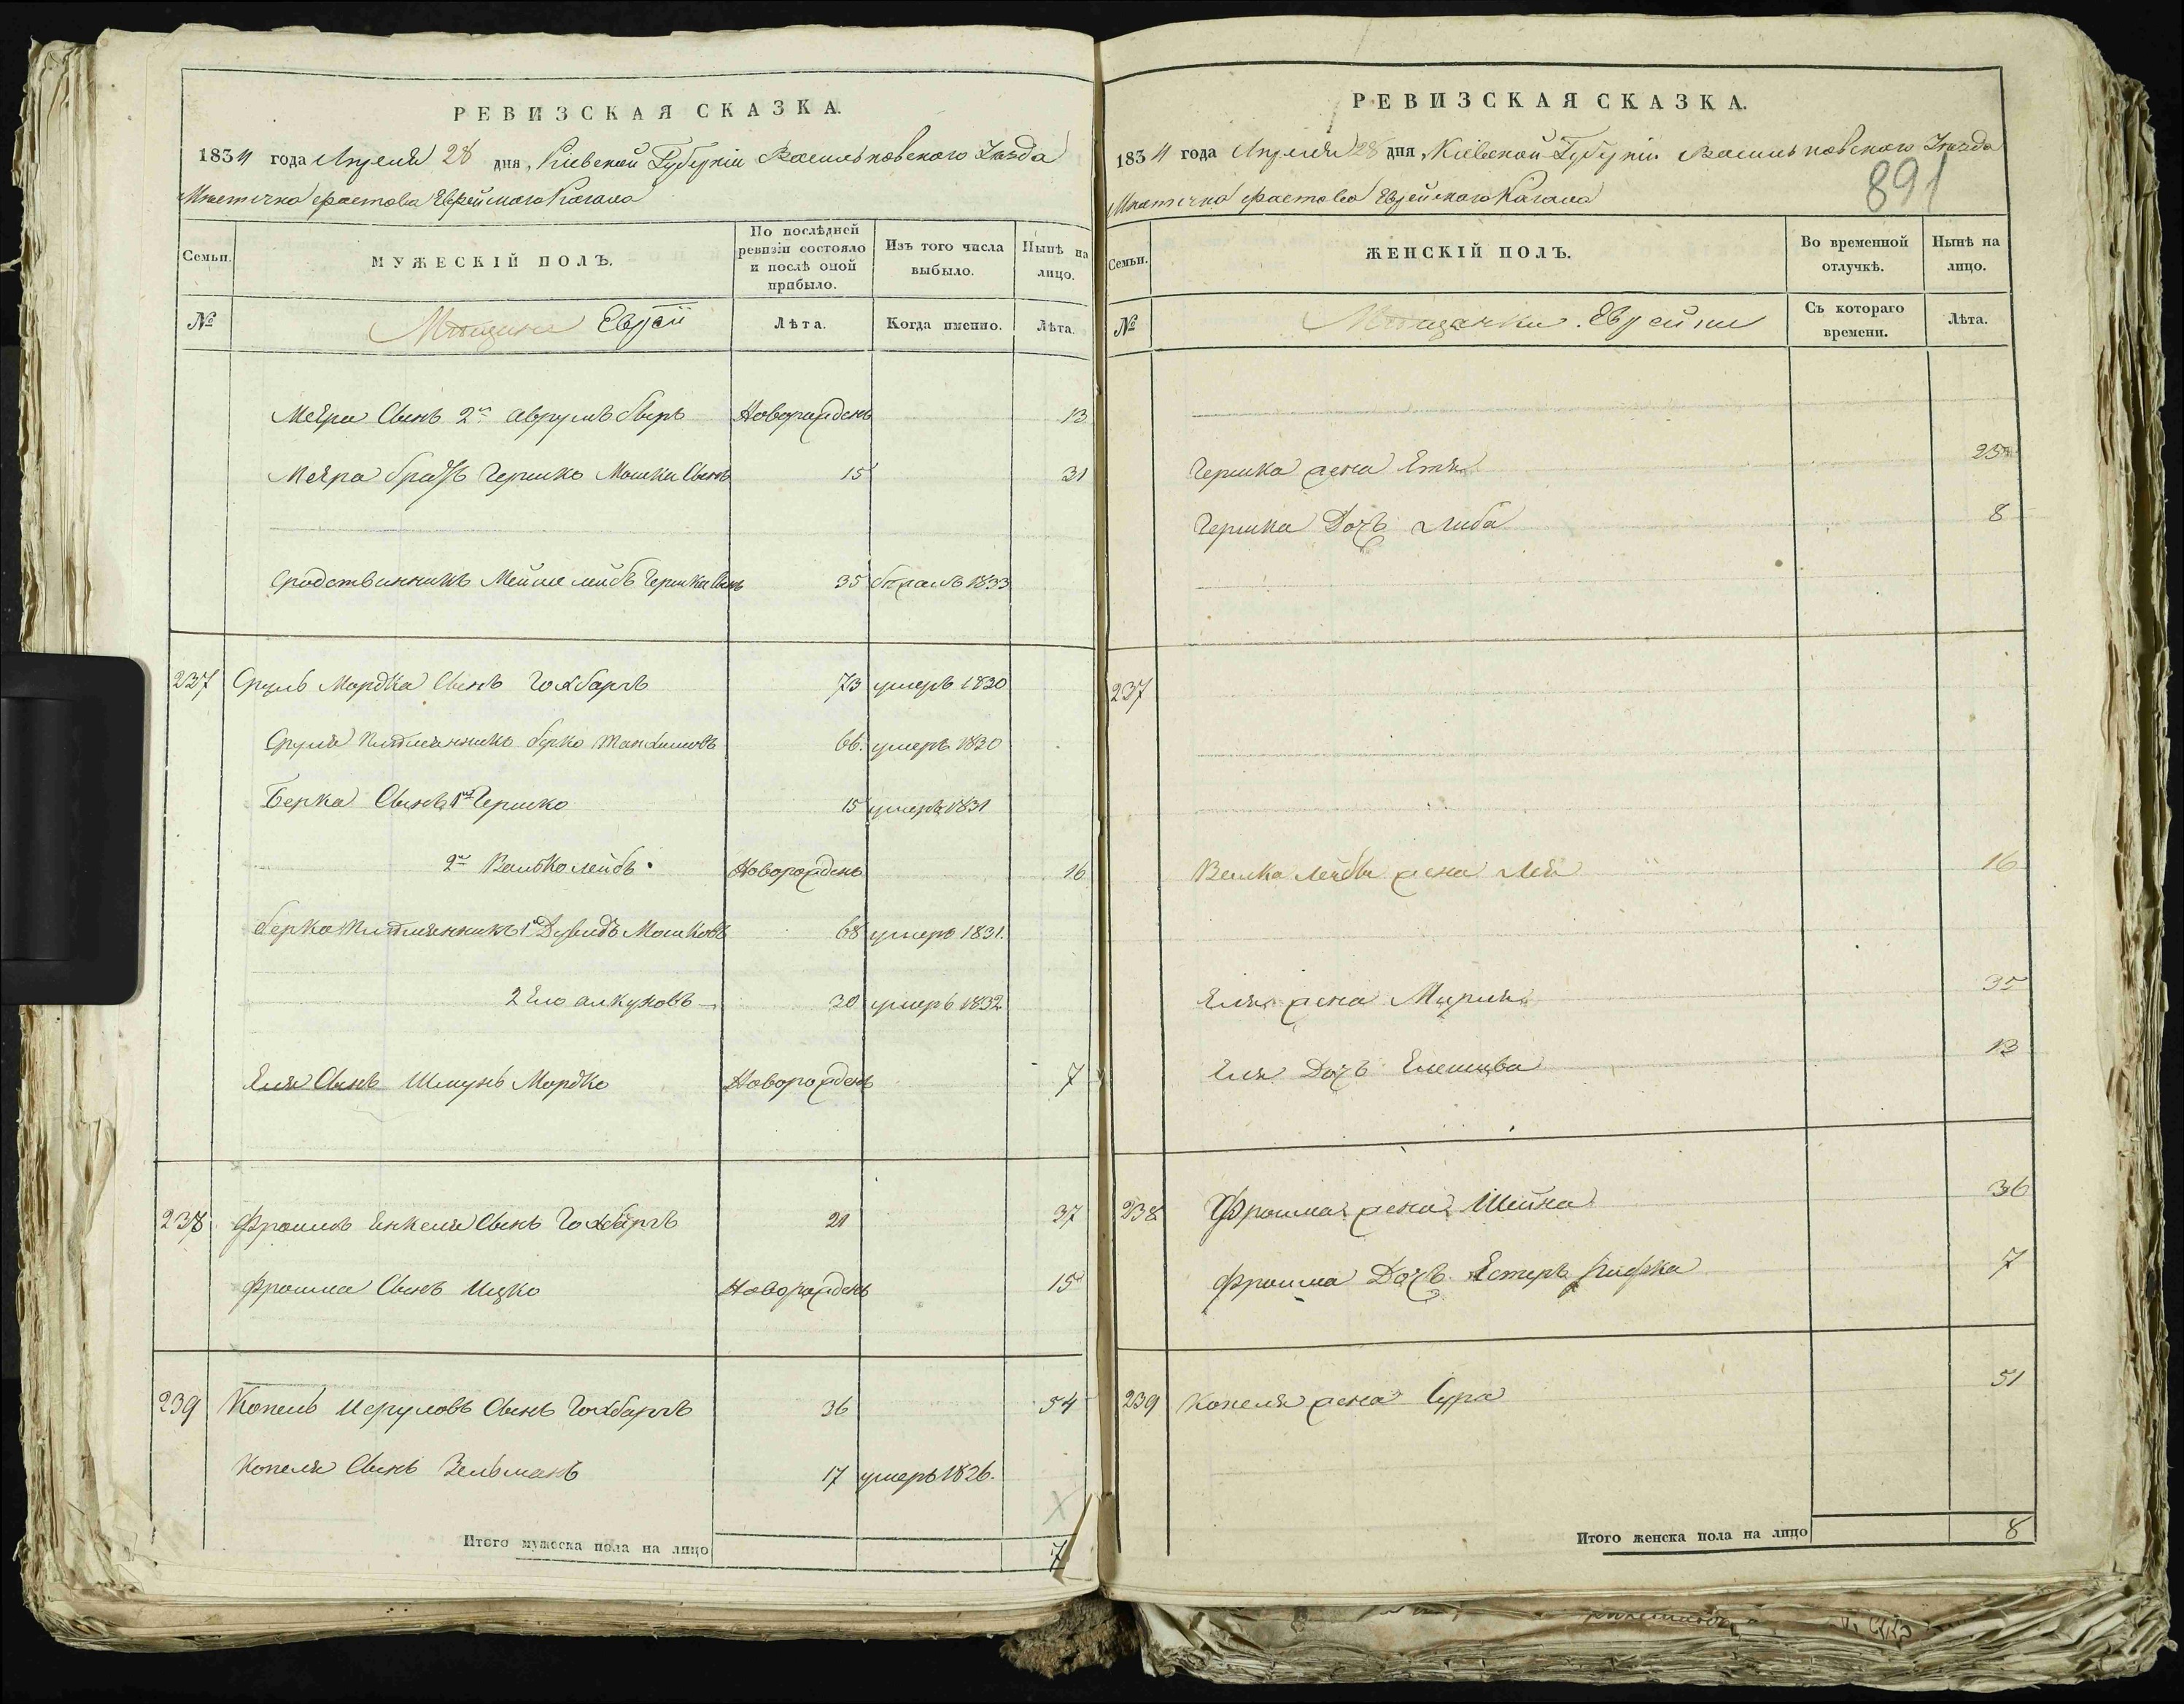 РЕВИЗСКАЯ СКАЗКА.
1834 года Апреля 28 дня, Кіевской Губерніи Васильковского Уезда
Местечка Фастова Еврейского Кагала
Семьи.
МУЖЕСКІЙ ПОЛЪ.
По послѣдней ревизіи состояло и послѣ оной прибыло.
Изъ того числа выбыло.
Нынѣ на лицо.
№
Мещане Евреи
Лѣта.
Когда именно.
Лѣта.
Меера Сынъ 2й Аврумъ Беръ Новорожденъ 13
Меера братъ Гершко Мошки Сынъ 15 31
Сродственникъ Лейбъ Гершка Сынъ 35 бежалъ 1833
237 Сруль Мордка Сынъ 73 умеръ 1830
Сруля племянникъ Берко 66. умеръ 1830
Берка Сынъ 1й Гершко 15 умеръ 1831
2й Валько лейбъ Новорожденъ 16
Берка племянникъ 1й Давидъ Мошковъ 68 умеръ 1831.
2 Ело 30 умеръ 1832
Еля Сынъ Шмунъ Мордко Новорожденъ 7
238 Фроимъ Енкеля Сынъ 21 37
Фроима Сынъ Ицко Новорожденъ 15
239 Копель Исруловъ Сынъ 36 54
Копеля Сынъ Зельманъ 17 умеръ 1826.
Итого мужеска пола на лицо 7
РЕВИЗСКАЯ СКАЗКА.
1834 года Апреля 28 дня, Кіевской Губерніи Васильковского Уезда
Местечка Фастова Еврейского Кагала
891
Семьи.
ЖЕНСКІЙ ПОЛЪ.
Во временной отлучкѣ.
Нынѣ на лицо.
№
Мещанки Еврейки
Съ котораго времени.
Лѣта.
Гершка жена Етя 25
Гершка Дочь Либа 8
237
Валка Лейбы жена Лея 16
Еля жена Мирля 35
Еля Дочь 13
238 Фроима жена Шейна 36
Фроима Дочь Естеръ Рифка 7
239 Копеля жена Сура 51
Итого женска пола на лицо 8